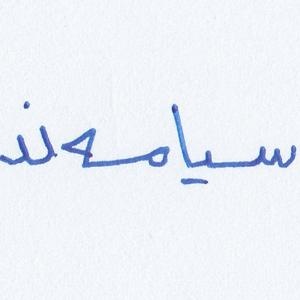 سیامەند